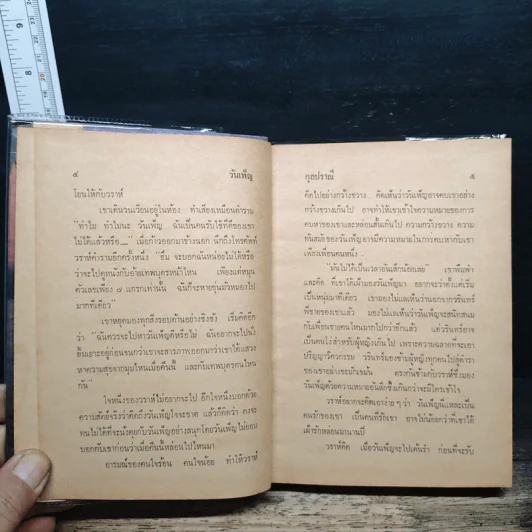 ๔ วันเพ็ญ
โยนให้กับวราห์
เขาเดินวนเวียนอยู่ในห้อง ทำเสียงเหมือนคำราม
"ทำไม ทำไมนะ วันเพ็ญ ฉันเป็นคนรับใช้ที่ดีของเขา
ไม่ได้แล้วหรือ" เมื่อก้าวออกมาข้างนอก นึกถึงโทรศัพท์
วราห์คำรามอีกครั้งหนึ่ง "ฮึ่ม จะบอกฉันหน่อยไม่ได้หรือ
ว่าจะไปดูหนังกับอ้ายเทพบุตรหน้าไหน เพียงแต่หมุน
ตัวเลขเพียง ๗ แกรกเท่านั้น ฉันก็จะหายหุนหันพลัน
มากทีเดียว"
เขาหยุดมองทุกสิ่งรอบด้านอย่างชิงชัง เริ่มคิดอีก
ว่า "ฉันควรจะไปหาวันเพ็ญดีหรือไม่ ฉันอยากจะไปนั่ง
ยิ้มเยาะอยู่ก่อนจนกว่าเขาจะสารภาพออกมาว่าเขาได้แสวง
หาความสุขจากมุมไหนเมื่อคืนนี้ และกับเทพบุตรคนไหน
กัน"
ใจหนึ่งของวราห์ไม่อยากจะไป อีกใจหนึ่งบอกด้วย
ความสัตย์จริงว่าคิดถึงวันเพ็ญใจจะขาด แล้วก็คิดว่า คงจะ
ทนไม่ได้ที่จะนั่งคุยกับวันเพ็ญอย่างสนุกโดยวันเพ็ญไม่ยอม
บอกกับเขาก่อนว่าเมื่อคืนนี้หล่อนไปไหนมา
อารมณ์ของคนใจร้อน คนใจน้อย ทำให้วราห์
กุลปราณี ๕
คิดไปอย่างกว้างขวาง คิดเห็นว่าวันเพ็ญอาจคบเขาอย่าง
กว้างขวางเกินไป อาจทำให้เขาเข้าใจความหมายของการ
คบหาของเขาและหล่อนสั้นเกินไป ความกว้างขวาง ความ
ทันสมัยของวันเพ็ญ อาจมีความหมายในการคบหากับเขา
เพียงเพื่อนคนหนึ่ง
"มันไม่ได้เป็นเวลาอันเล็กน้อยเลย" เขาพึมพำ
และคิด ที่เขาได้เฝ้ามองวันเพ็ญมา อยากจะว่าตั้งแต่เริ่ม
เป็นหนุ่มมาทีเดียว เขามองไม่แลเห็นว่านอกจากวรินทร์
พี่ชายของเขาแล้ว มองไม่แลเห็นว่าวันเพ็ญจะสนิทสนม
กับเพื่อนชายคนไหนมากไปกว่าอีกแล้ว แต่วรินทร์อาจ
เป็นคนโง่สำหรับผู้หญิงเกินไป เพราะความฉลาดที่จะเอา
ปริญญาวิศวกรรม วรินทร์มองข้ามผู้หญิงทุกคนไปสู่ตำรา
ของเขาอย่างเซ่อเกินขนาด ตรงกันข้ามกับวราห์ซึ่งมอง
วันเพ็ญด้วยความหมายอันลึกซึ้งเกินกว่าจะมีใครเข้าใจ
วราห์อยากจะคิดเอาง่าย ๆ ว่า วันเพ็ญนี่แหละเป็น
คนรักของเขา เป็นคนที่รักเขา อาจให้น้อยกว่าที่เขาได้
เฝ้ารักหล่อนมานานปี
วราห์คิด เมื่อวันเพ็ญจะไปเต้นรำ ก่อนที่จะรับ